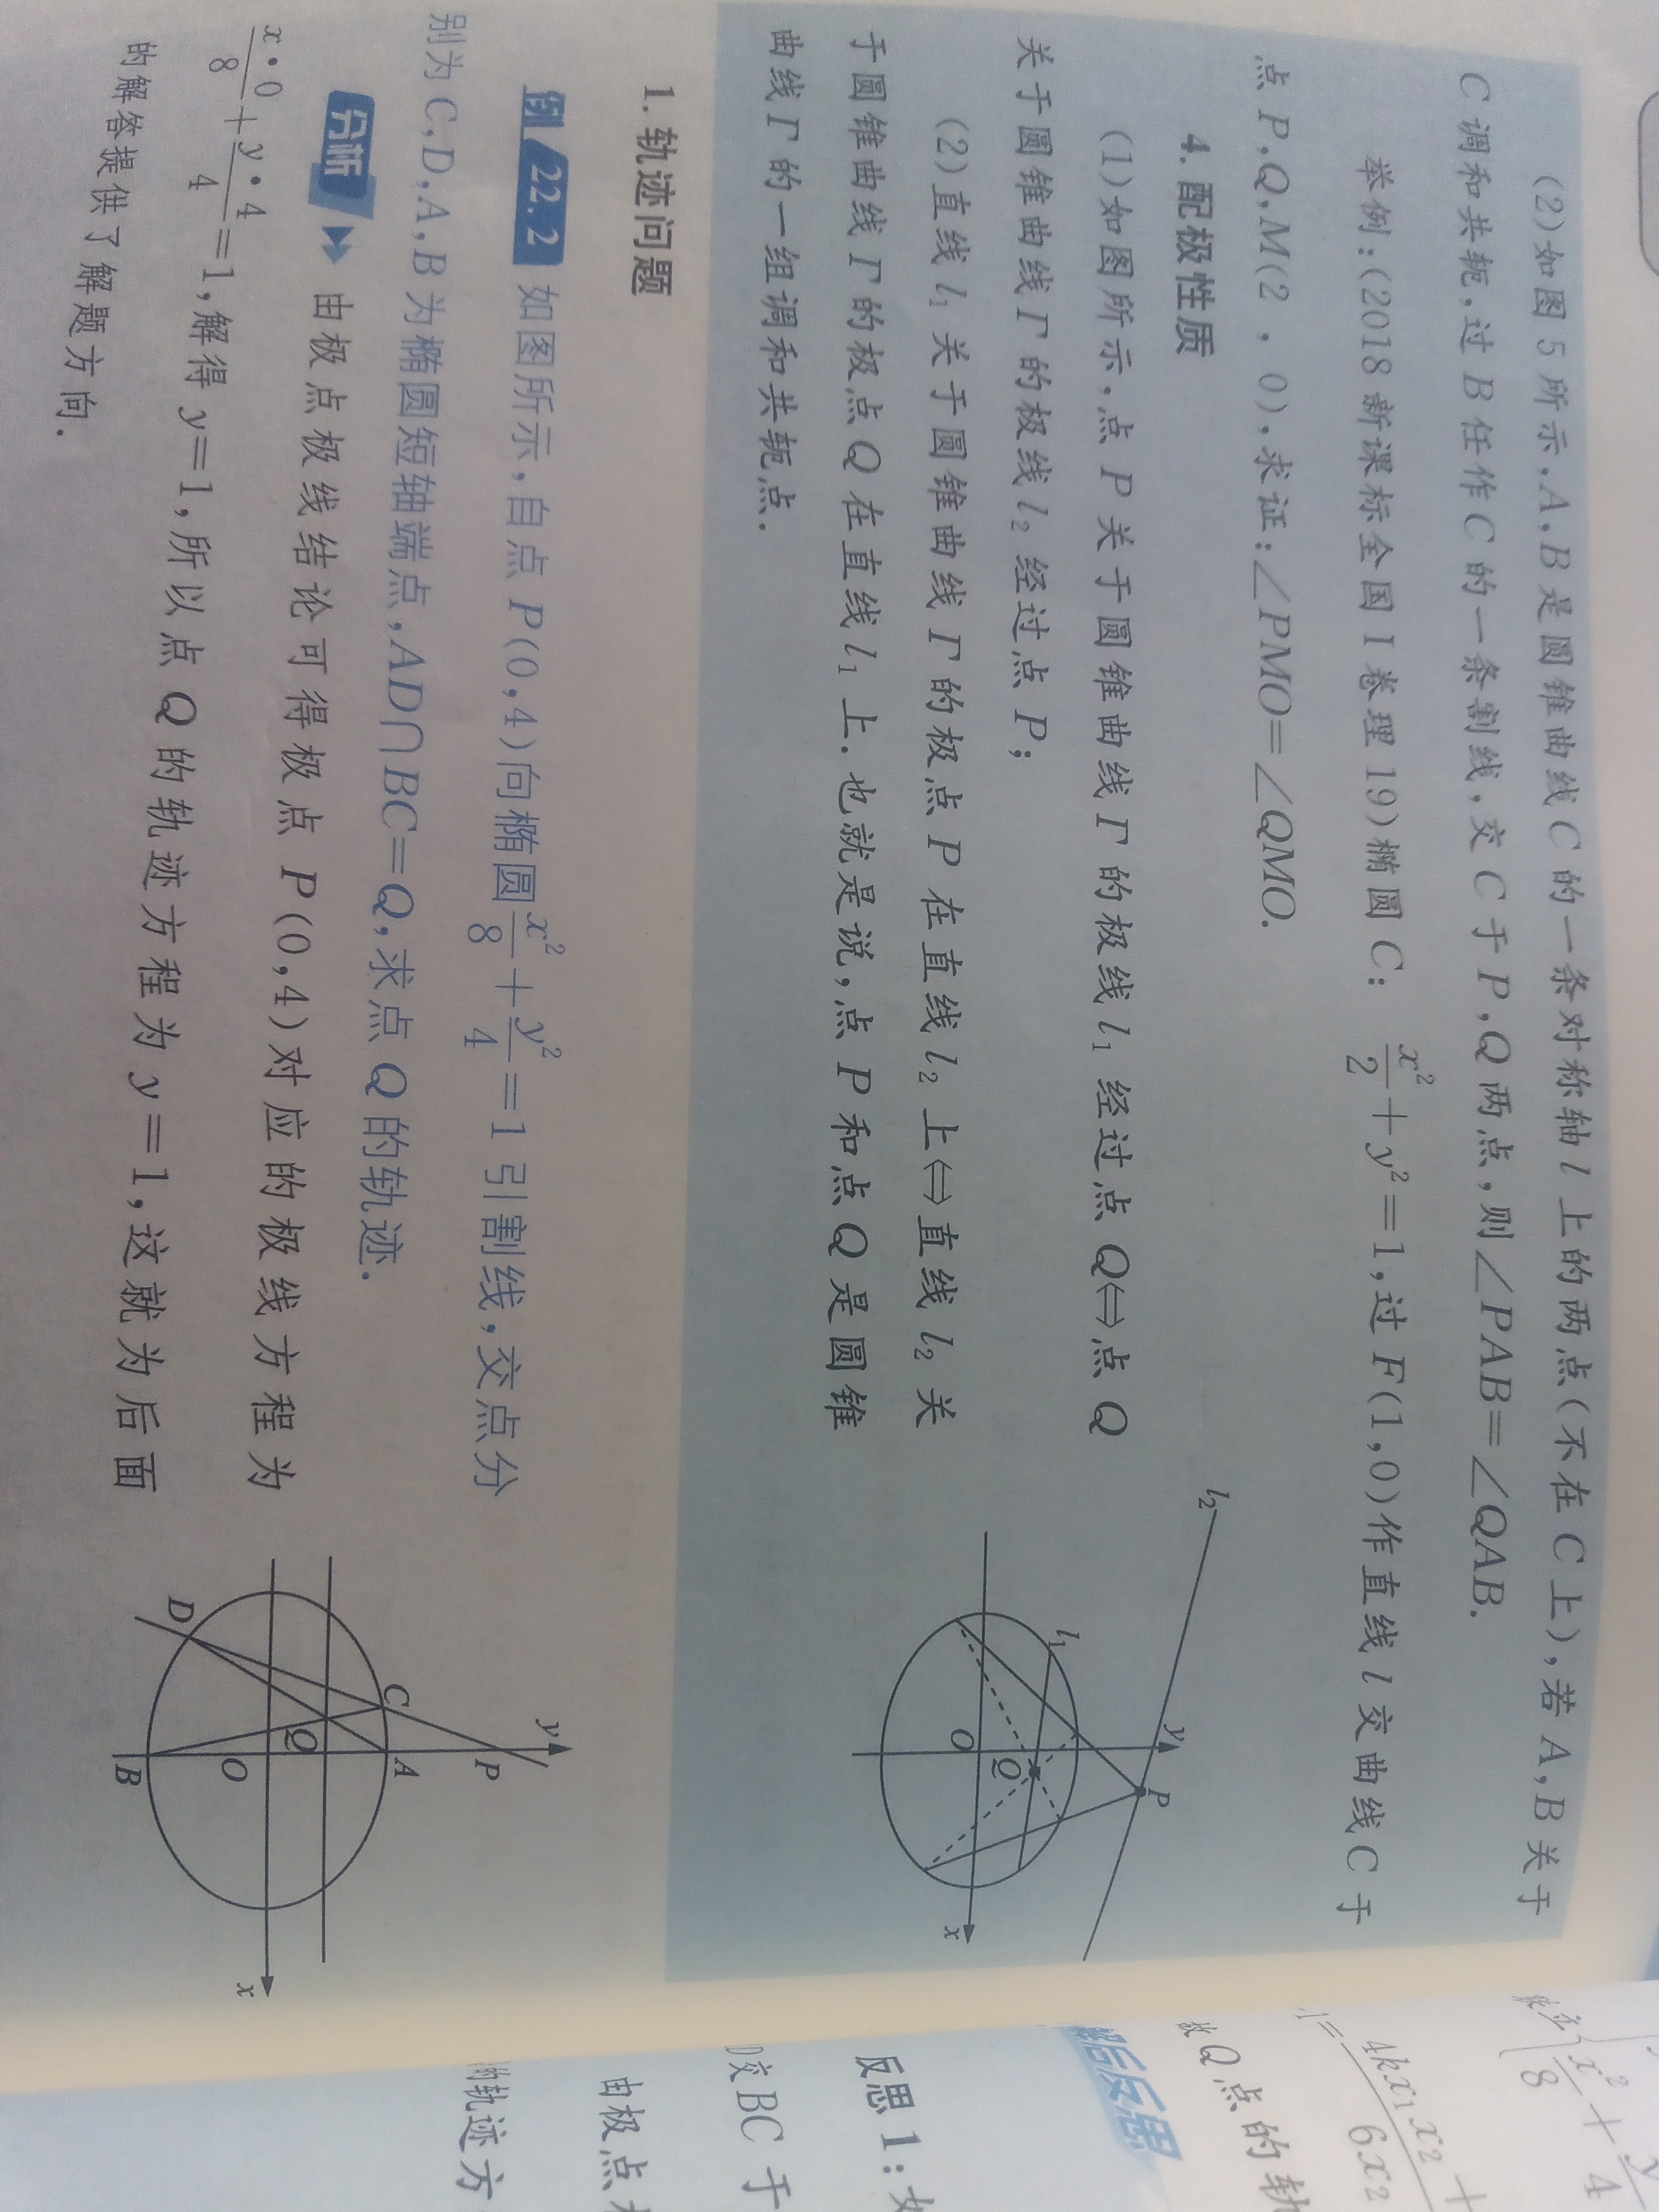 (2)如图 5 所示,A,B 是圆锥曲线 C 的一条对称轴 l 上的两点(不在 C 上),若 A,B 关于
C 调和共轭,过 B 任作 C 的一条割线,交 C 于 P,Q 两点,则∠PAB=∠QAB.
举例:(2018 新课标全国 I 卷理 19)椭圆 C: x²/2+y²=1,过 F(1,0)作直线 l 交曲线 C 于
点 P,Q,M(2,0),求证:∠PMO=∠QMO.
4. 配极性质
(1)如图所示,点 P 关于圆锥曲线 Γ 的极线 l₁ 经过点 Q⇔点 Q
关于圆锥曲线 Γ 的极线 l₂ 经过点 P;
(2)直线 l₁ 关于圆锥曲线 Γ 的极点 P 在直线 l₂ 上⇔直线 l₂ 关
于圆锥曲线 Γ 的极点 Q 在直线 l₁ 上.也就是说,点 P 和点 Q 是圆锥
曲线 Γ 的一组调和共轭点.
l₂
y
P
l₁
Q
O
x
1. 轨迹问题
例 22.2 如图所示,自点 P(0,4)向椭圆 x²/8+y²/4=1 引割线,交点分
别为 C,D,A,B 为椭圆短轴端点,AD∩BC=Q,求点 Q 的轨迹.
分析 由极点极线结论可得极点 P(0,4)对应的极线方程为
x·0/8+y·4/4=1,解得 y=1,所以点 Q 的轨迹方程为 y=1,这就为后面
的解答提供了解题方向.
y
P
C
A
Q
O
D
B
x
x²/8
4kx₁x₂+
6x₂
Q 点的轨
解后反思
反思 1:如
交 BC 于
由极点
的轨迹方